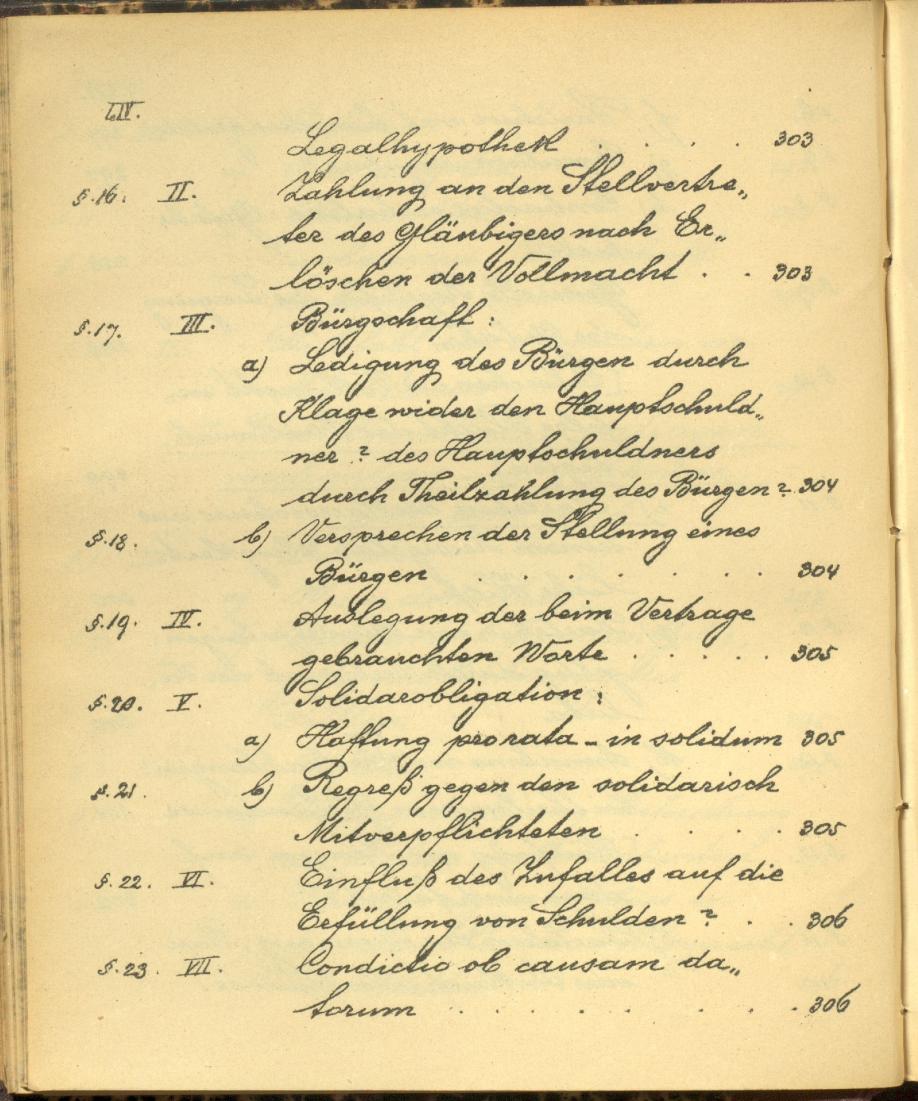 LIV.
Legalhypothek . . . . 303
§.16. II. Zahlung an den Stellvertre„
ter des Gläubigers nach Er„
löschen der Vollmacht . . 303
§.17. III. Bürgschaft:
a) Ledigung des Bürgen durch
Klage wider den Hauptschuld„
ner? des Hauptschuldners
durch Theilzahlung des Bürgen? 304
§.18. b) Versprechen der Stellung eines
Bürgen . . . . . . . 304
§.19. IV. Auslegung der beim Vertrage
gebrauchten Worte . . . . . 305
§.20. V. Solidarobligation:
a) Haftung pro rata - in solidum 305
§.21. b) Regreß gegen den solidarisch
Mitverpflichteten . . . . 305
§.22. VI. Einfluß des Zufalles auf die
Erfüllung von Schulden? . . 306
§.23. VII. Condictio ob causam da„
torum . . . . . . . . 306